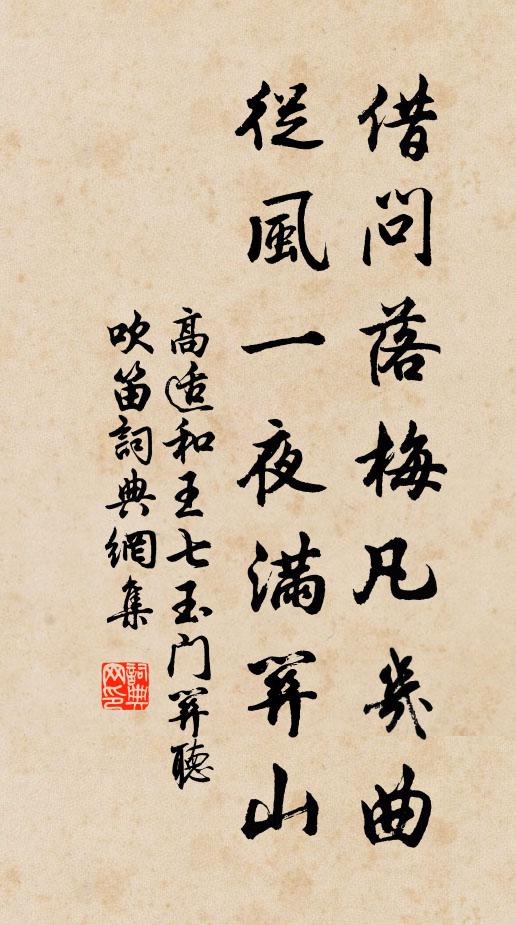 借問落梅凡幾曲
從風一夜滿關山
高适和王七玉门關聽
吹笛詞典網集
詞典
网印